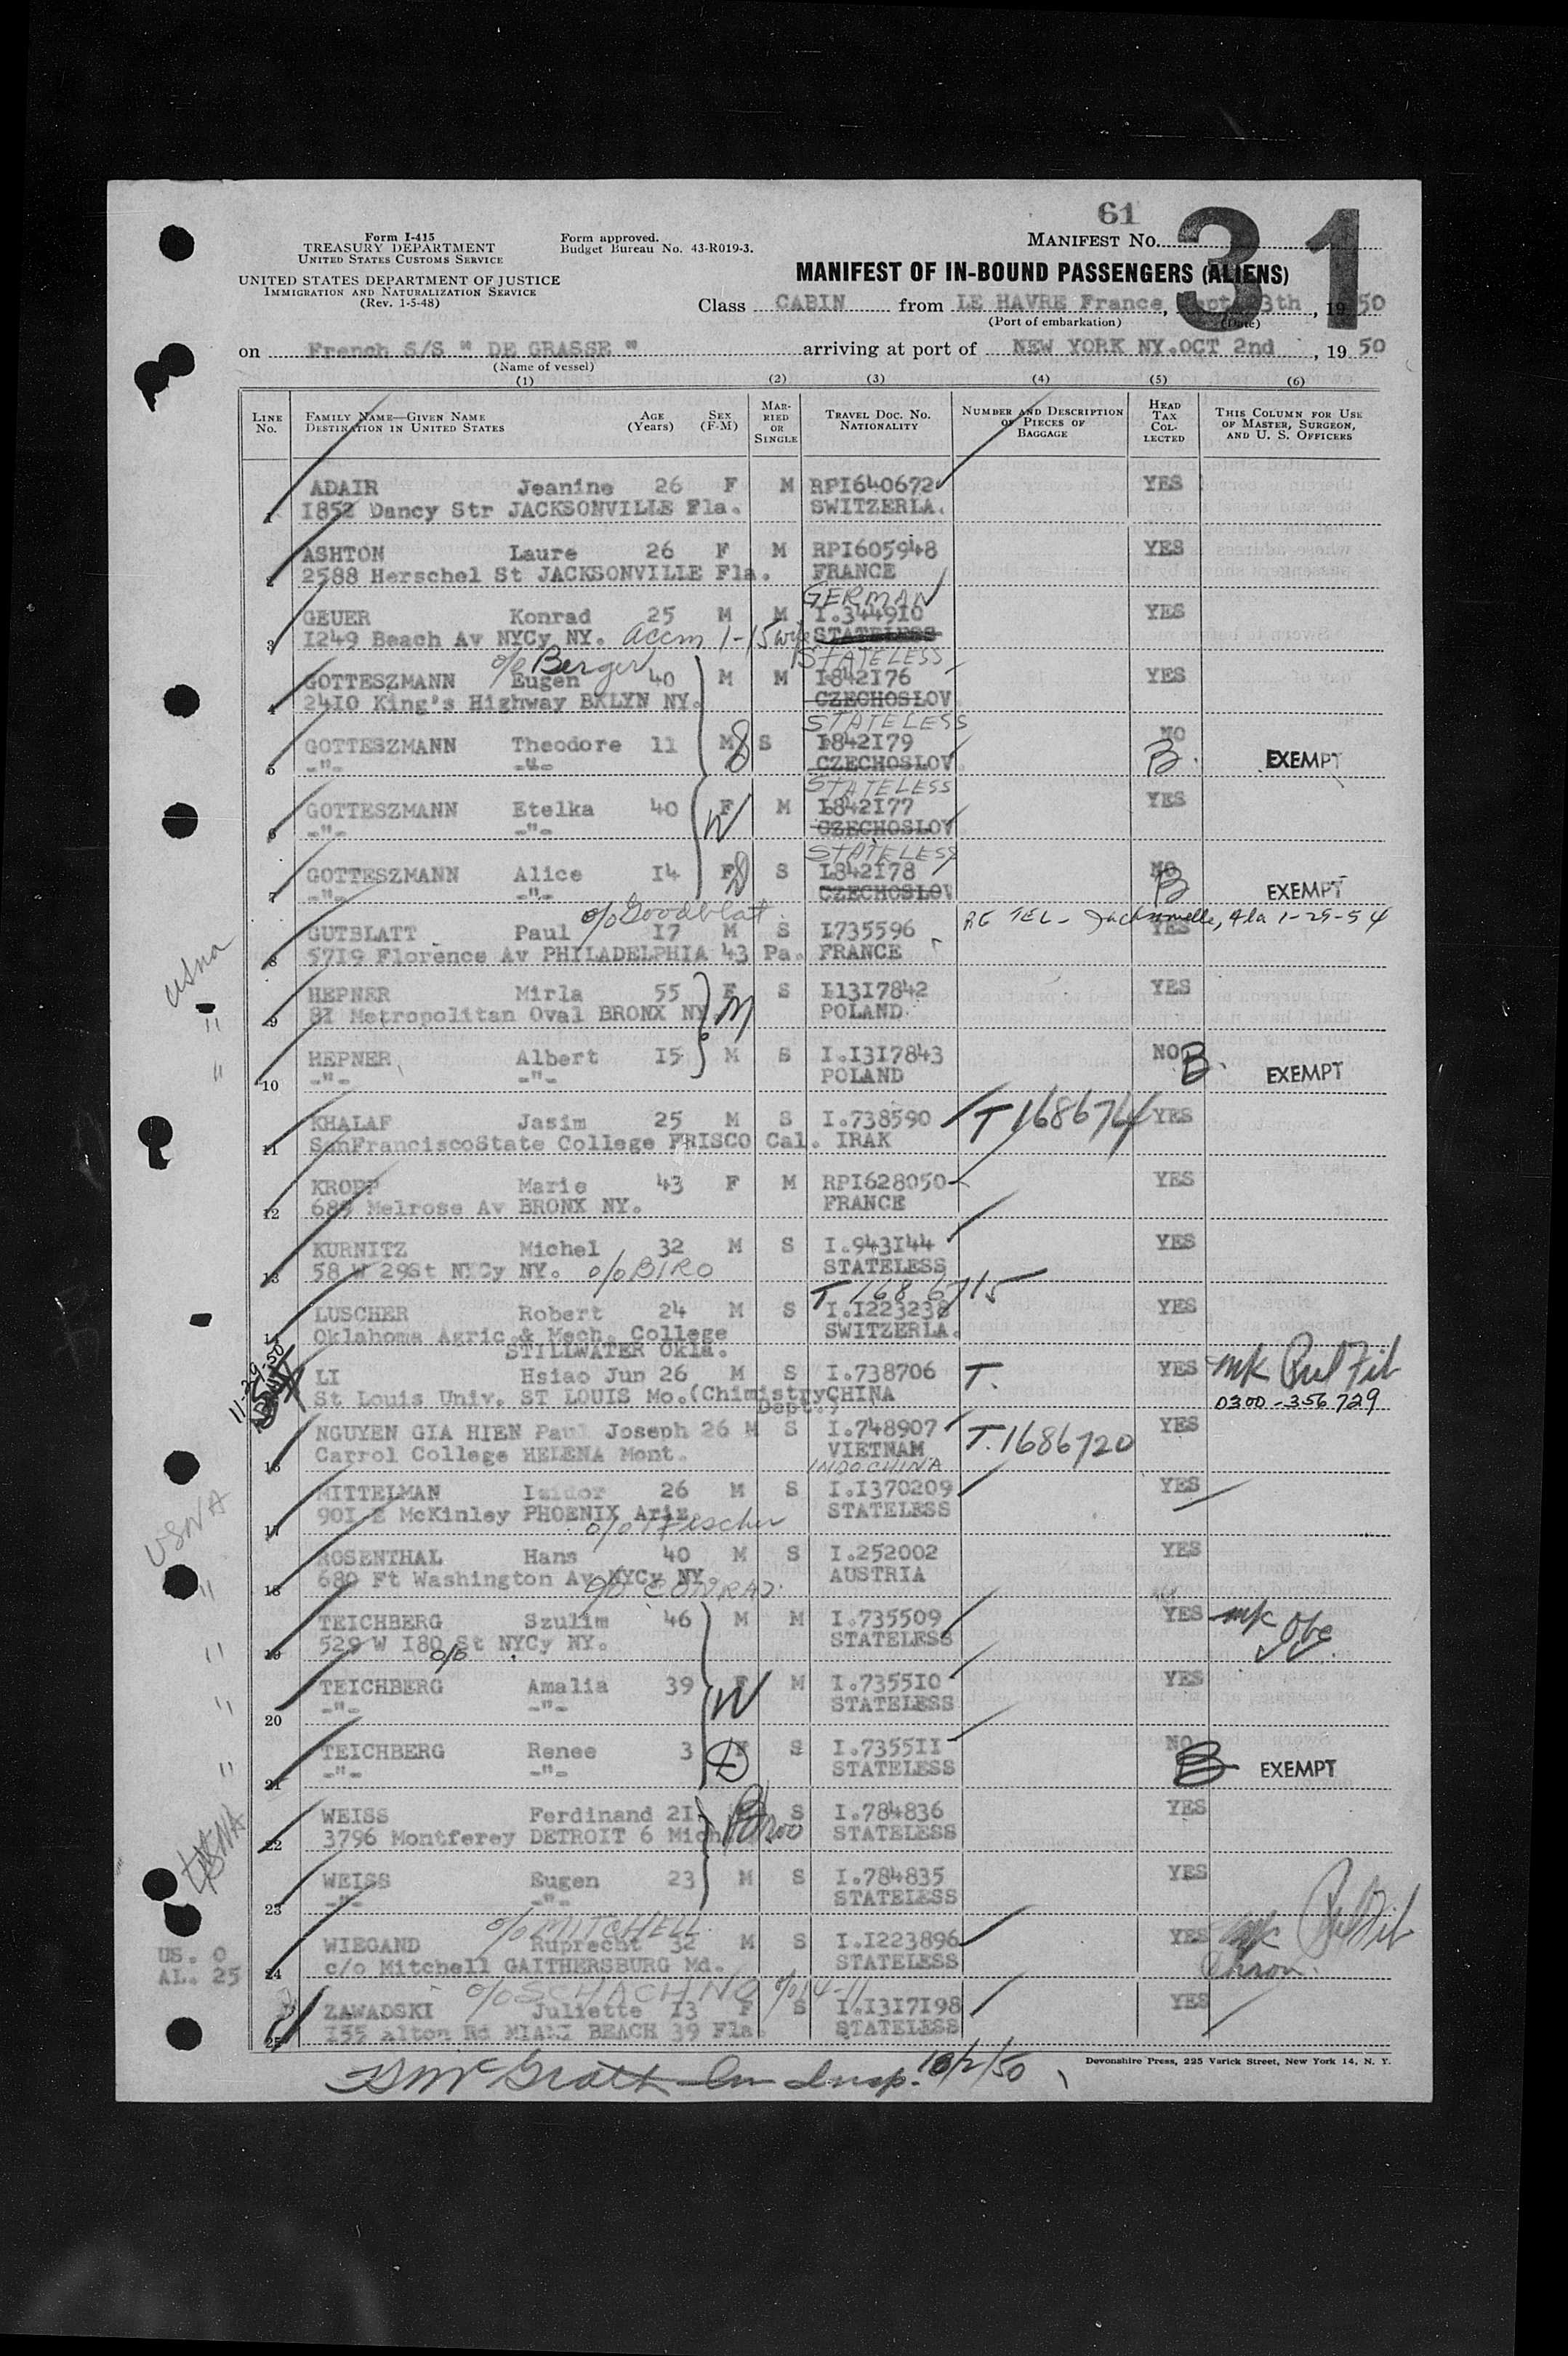 61
31
Form I-415
TREASURY DEPARTMENT
UNITED STATES CUSTOMS SERVICE
UNITED STATES DEPARTMENT OF JUSTICE
IMMIGRATION AND NATURALIZATION SERVICE
(Rev. 1-5-48)
Form approved.
Budget Bureau No. 43-R019-3.
MANIFEST NO.
MANIFEST OF IN-BOUND PASSENGERS (ALIENS)
Class CABIN from LE HAVRE France, 3th, 1950
(Port of embarkation) (Date)
on French S/S " DE GRASSE " arriving at port of NEW YORK NY. OCT 2nd, 1950
(Name of vessel)
(1) (2) (3) (4) (5) (6)
LINE No. FAMILY NAME—GIVEN NAME DESTINATION IN UNITED STATES AGE (Years) SEX (F-M) MARRIED OR SINGLE TRAVEL DOC. NO. NATIONALITY NUMBER AND DESCRIPTION OF PIECES OF BAGGAGE HEAD TAX COLLECTED THIS COLUMN FOR USE OF MASTER, SURGEON, AND U. S. OFFICERS
1 ADAIR Jeanine 26 F M RPI640672 YES
I852 Dancy Str JACKSONVILLE Fla. SWITZERLA.
2 ASHTON Laure 26 F M RPI605948 YES
2588 Herschel St JACKSONVILLE Fla. FRANCE
GERMAN
3 GEUER Konrad 25 M M I.3449I0 YES
I249 Beach Av NYCy NY. accm 1-15 wife STATELESS
o/o Berger STATELESS
4 GOTTESZMANN Eugen 40 M M I842I76 YES
24I0 King's Highway BKLYN NY. CZECHOSLOV
STATELESS
5 GOTTESZMANN Theodore II M S I842I79 NO B. EXEMPT
-"- -"- CZECHOSLOV
STATELESS
6 GOTTESZMANN Etelka 40 F W M I842I77 YES
-"- -"- CZECHOSLOV
STATELESS
7 GOTTESZMANN Alice I4 F D S I842I78 NO B EXEMPT
-"- -"- CZECHOSLOV
o/o Goodblat. RE TEL - Jacksonville, Fla 1-29-54
8 GUTBLATT Paul I7 M S I735596 YES
57I9 Florence Av PHILADELPHIA 43 Pa. FRANCE
usna
9 HEPNER Mirla 55 F M S I13I7842 YES
8I Metropolitan Oval BRONX NY POLAND
10 HEPNER Albert I5 M S I.I3I7843 NO B. EXEMPT
-"- -"- POLAND
11 KHALAF Jasim 25 M S I.738590 T1686744 YES
SanFranciscoState College FRISCO Cal. IRAK
12 KROPP Marie 43 F M RPI628050 YES
689 Melrose Av BRONX NY. FRANCE
13 KURNITZ Michel 32 M S I.943I44 YES
58 W 29St NYCy NY. o/o BIRO STATELESS
T 1686715
14 LUSCHER Robert 24 M S I.I223238 YES
Oklahoma Agric. & Mech. College SWITZERLA.
STILLWATER Okla.
11-29-50
LI Hsiao Jun 26 M S I.738706 T. YES
St Louis Univ. ST LOUIS Mo.(Chimistry CHINA 0300-356729
Dept.)
16 NGUYEN GIA HIEN Paul Joseph 26 M S I.748907 T.1686720 YES
Carrol College HELENA Mont. VIETNAM
INDOCHINA
17 MITTELMAN Izidor 26 M S I.I370209 YES
90I E McKinley PHOENIX Ariz STATELESS
o/o Fischer
USNA
18 ROSENTHAL Hans 40 M S I.252002 YES
680 Ft Washington Av NYCy NY AUSTRIA
o/o CONRAD.
19 TEICHBERG Szulim 46 M M I.735509 YES
529 W I80 St NYCy NY. STATELESS
o/o
20 TEICHBERG Amalia 39 W M I.7355I0 YES
-"- -"- STATELESS
21 TEICHBERG Renee 3 D S I.7355II NO B EXEMPT
-"- -"- STATELESS
22 WEISS Ferdinand 2I S I.784836 YES
3796 Montferey DETROIT 6 Mich STATELESS
USNA
23 WEISS Eugen 23 M S I.784835 YES
-"- -"- STATELESS
o/o MITCHELL
24 WIEGAND Ruprecht 32 M S I.I223896 YES
c/o Mitchell GAITHERSBURG Md. STATELESS
US. 0
AL. 25
25 ZAWADSKI Juliette I3 F S I.I3I7I98 YES
I55 Alton Rd MIAMI BEACH 39 Fla. STATELESS
Devonshire Press, 225 Varick Street, New York 14, N. Y.
McGrath Im Insp. 10/2/50